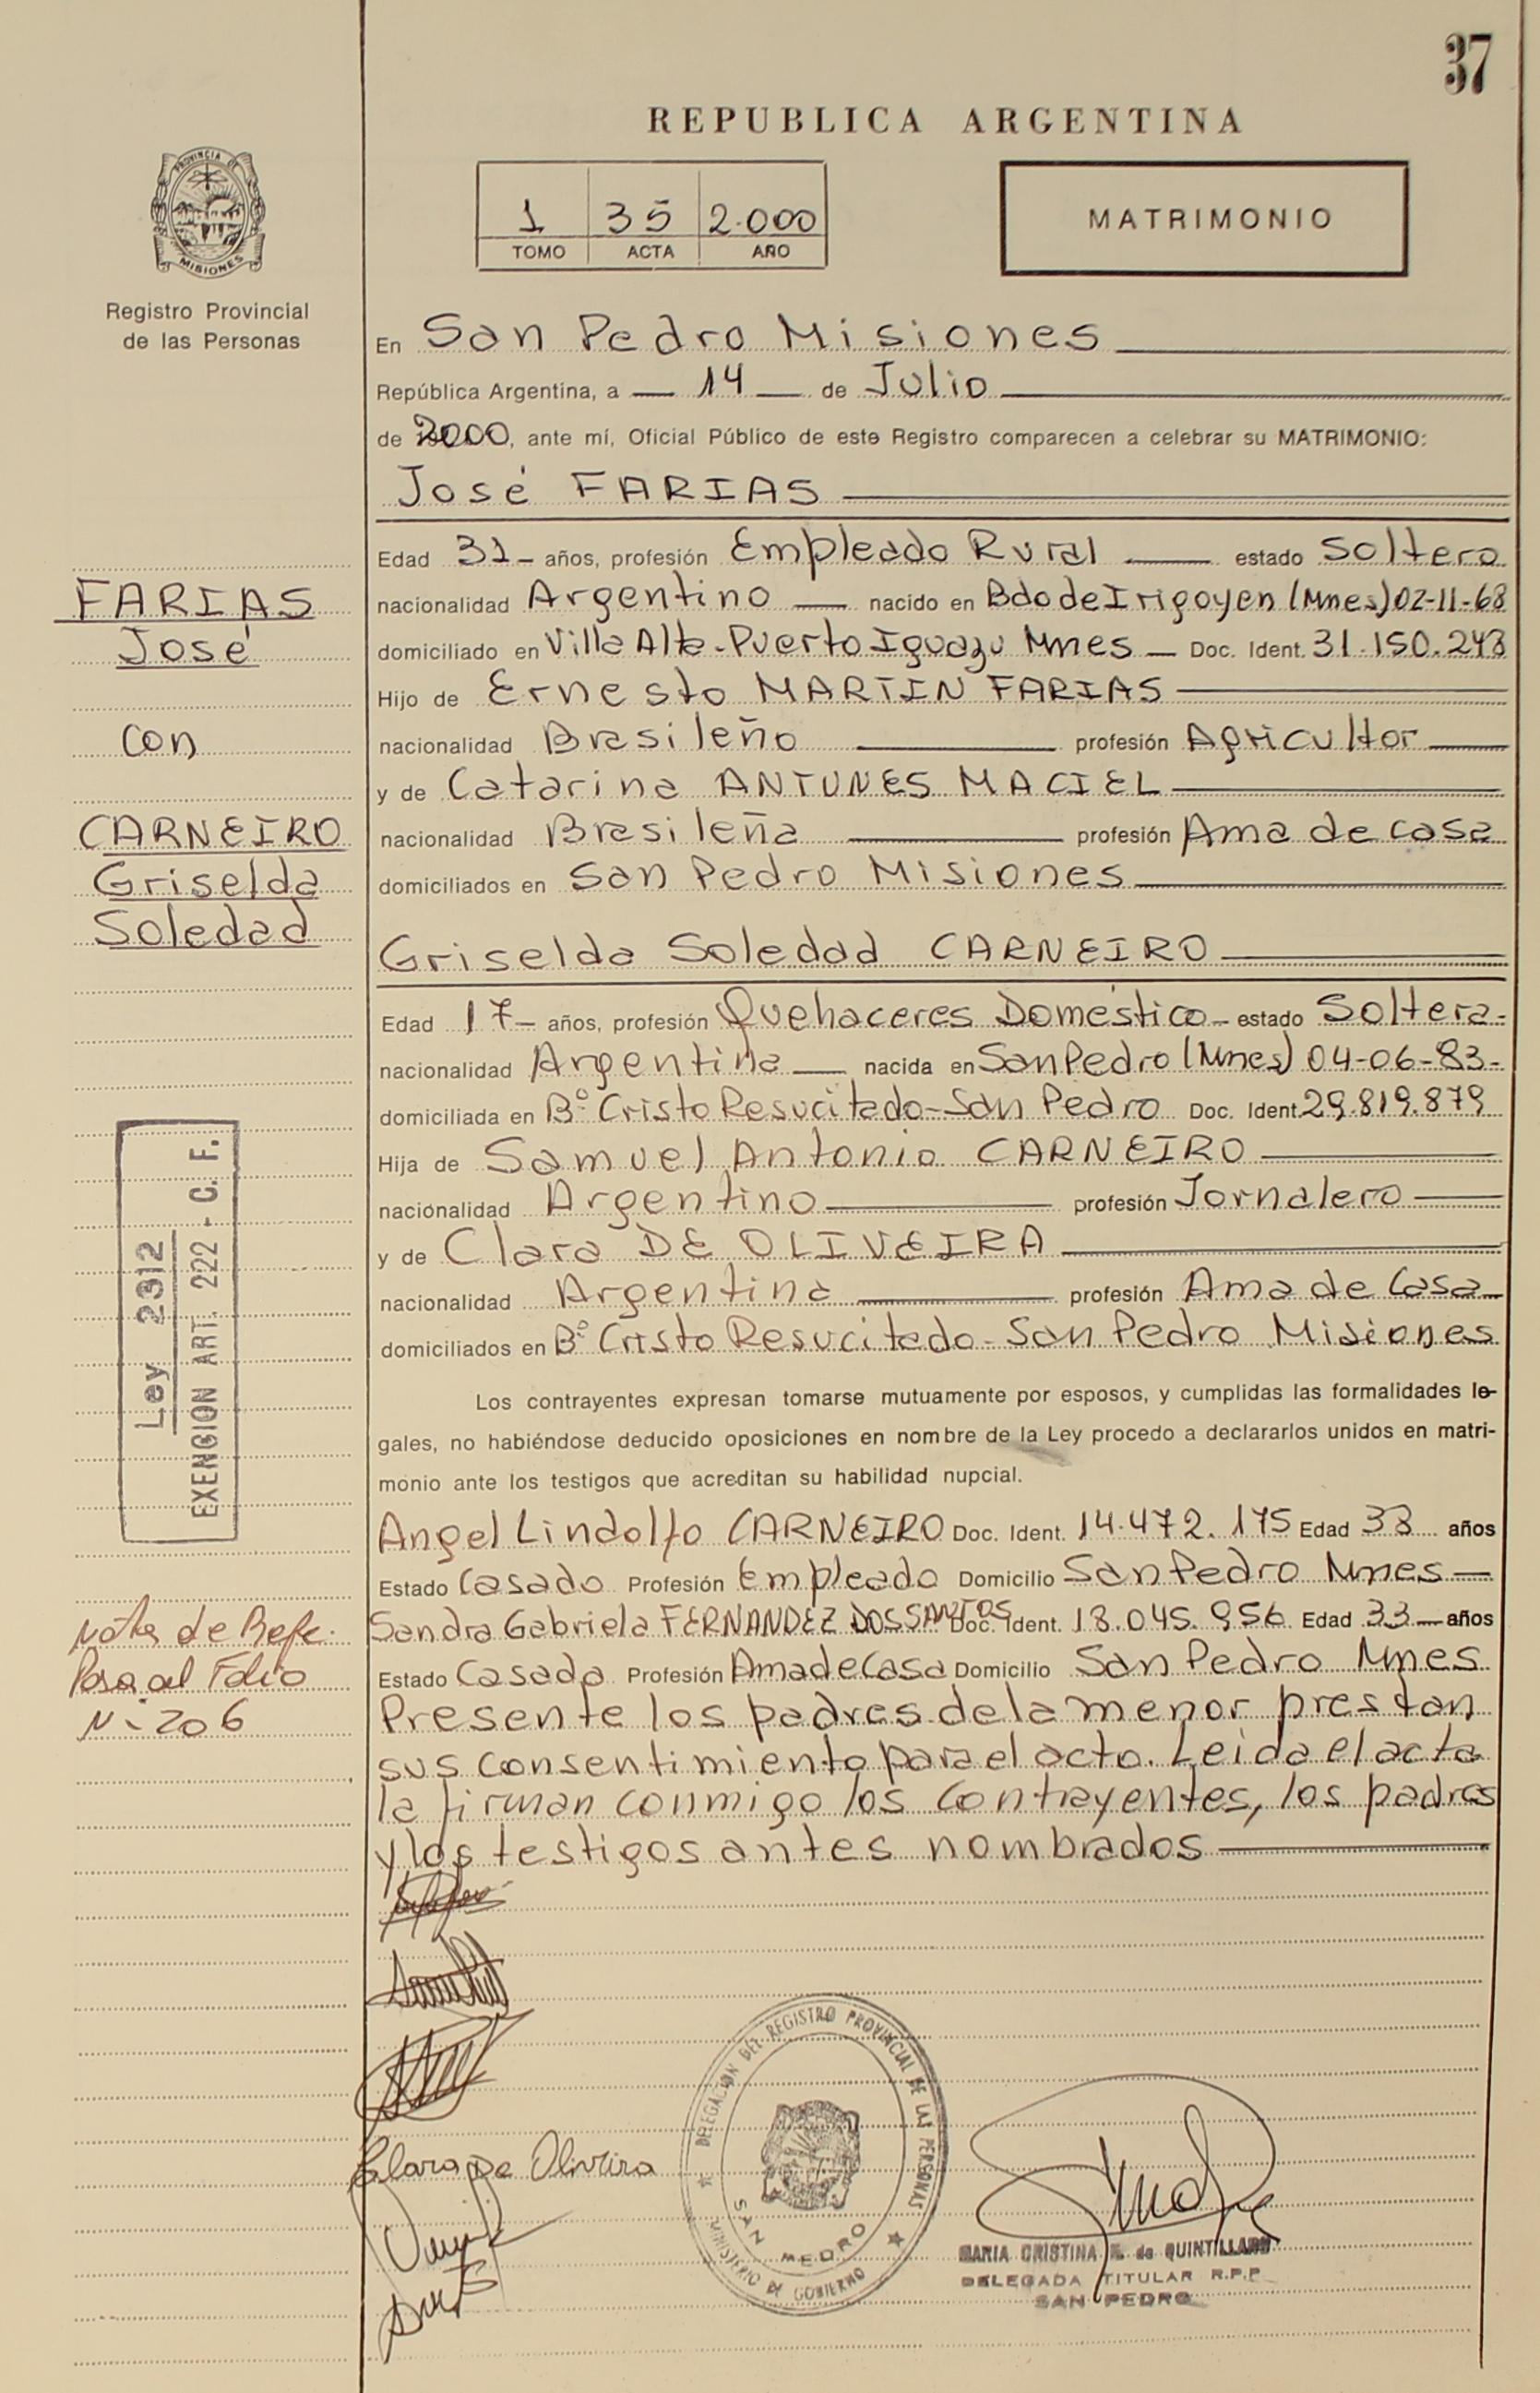 37
REPUBLICA ARGENTINA
1 35 2.000
TOMO ACTA AÑO
MATRIMONIO
PROVINCIA DE
MISIONES
Registro Provincial
de las Personas
En San Pedro Misiones
República Argentina, a 14 de Julio
de 2000, ante mí, Oficial Público de este Registro comparecen a celebrar su MATRIMONIO:
José FARIAS
Edad 31 años, profesión Empleado Rural estado Soltero
nacionalidad Argentino nacido en Bdo de Irigoyen (Mnes) 02-11-68
domiciliado en Villa Alta - Puerto Iguazu Mnes Doc. Ident. 31.150.243
Hijo de Ernesto MARTIN FARIAS
nacionalidad Brasileño profesión Agricultor
y de Catarina ANTUNES MACIEL
nacionalidad Brasileña profesión Ama de casa
domiciliados en San Pedro Misiones
Griselda Soledad CARNEIRO
Edad 17 años, profesión Quehaceres Doméstico estado Soltera
nacionalidad Argentina nacida en San Pedro (Mnes) 04-06-83
domiciliada en Bº Cristo Resucitado - San Pedro Doc. Ident. 29.819.879
Hija de Samuel Antonio CARNEIRO
nacionalidad Argentino profesión Jornalero
y de Clara DE OLIVEIRA
nacionalidad Argentina profesión Ama de Casa
domiciliados en Bº Cristo Resucitado - San Pedro Misiones
Los contrayentes expresan tomarse mutuamente por esposos, y cumplidas las formalidades le-
gales, no habiéndose deducido oposiciones en nombre de la Ley procedo a declararlos unidos en matri-
monio ante los testigos que acreditan su habilidad nupcial.
Angel Lindolfo CARNEIRO Doc. Ident. 14.472.175 Edad 33 años
Estado Casado Profesión Empleado Domicilio San Pedro Mnes
Sandra Gabriela FERNANDEZ DOS SANTOS Doc. Ident. 18.045.956 Edad 33 años
Estado Casada Profesión Ama de Casa Domicilio San Pedro Mnes
Presente los padres de la menor prestan
sus consentimiento para el acto. Leida el acta
la firman conmigo los contrayentes, los padres
y los testigos antes nombrados
FARIAS
José
con
CARNEIRO
Griselda
Soledad
Ley 2312
EXENCION ART. 222 - C. F.
Nota de Refe.
Pasa al Folio
N- 206
Clara De Oliveira
DELEGACION DEL REGISTRO PROVINCIAL DE LAS PERSONAS
SAN PEDRO
MINISTERIO DE GOBIERNO
MARIA CRISTINA de QUINTILLAN
DELEGADA TITULAR R.P.P
SAN PEDRO